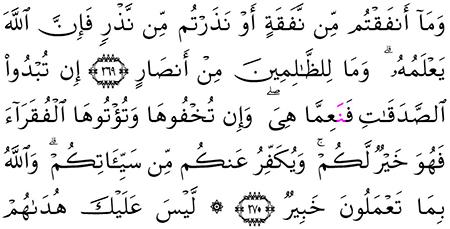 وَمَآ أَنفَقْتُم مِّن نَّفَقَةٍ أَوْ نَذَرْتُم مِّن نَّذْرٍ فَإِنَّ ٱللَّهَ
يَعْلَمُهُۥۗ وَمَا لِلظَّٰلِمِينَ مِنْ أَنصَارٍ ٢٦٩ إِن تُبْدُواْ
ٱلصَّدَقَٰتِ فَنَعِمَّا هِىَۖ وَإِن تُخْفُوهَا وَتُؤْتُوهَا ٱلْفُقَرَآءَ
فَهُوَ خَيْرٌ لَّكُمْۚ وَيُكَفِّرُ عَنكُم مِّن سَيِّـَٔاتِكُمْۗ وَٱللَّهُ
بِمَا تَعْمَلُونَ خَبِيرٌ ٢٧٠ ۞ لَّيْسَ عَلَيْكَ هُدَىٰهُمْ